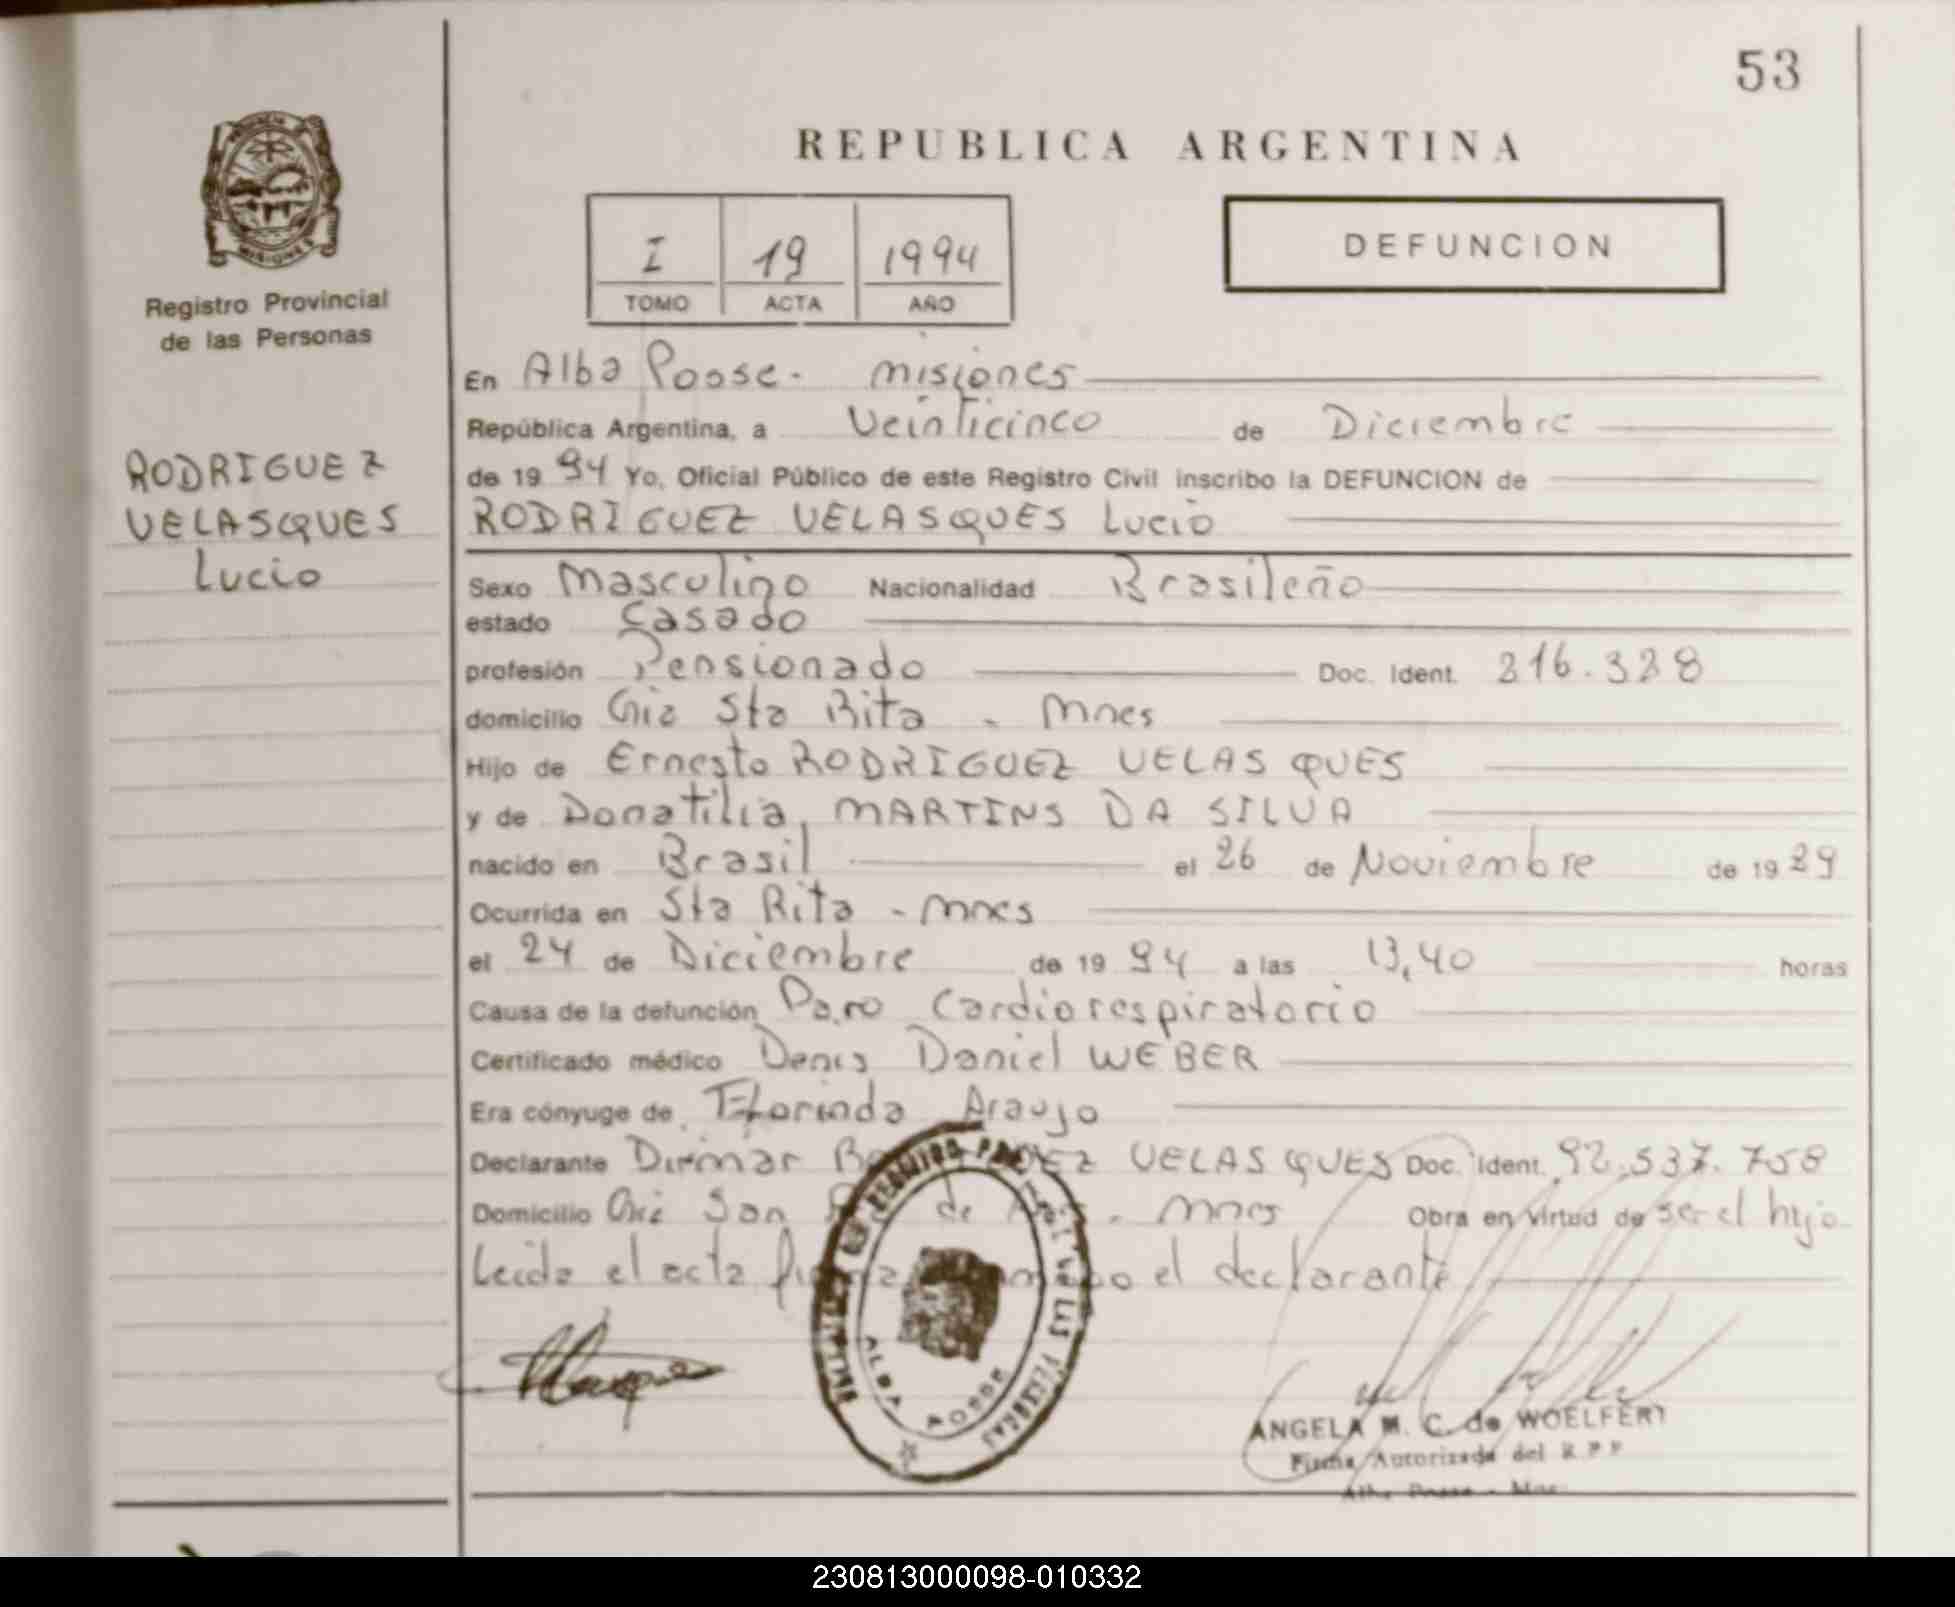 53
REPUBLICA ARGENTINA
I 19 1994
TOMO ACTA AÑO
DEFUNCION
Registro Provincial
de las Personas
RODRIGUEZ
VELASQUES
Lucio
En Alba Posse. misiones
República Argentina, a Veinticinco de Diciembre
de 19 94 Yo, Oficial Público de este Registro Civil inscribo la DEFUNCION de
RODRIGUEZ VELASQUES Lucio
Sexo Masculino Nacionalidad Brasileño
estado Casado
profesión Pensionado Doc. Ident. 216.328
domicilio Sta Rita - Mnes
Hijo de Ernesto RODRIGUEZ VELASQUES
y de Donatilia MARTINS DA SILVA
nacido en Brasil el 26 de Noviembre de 19 29
Ocurrida en Sta Rita - Mnes
el 24 de Diciembre de 19 94 a las 13,40 horas
Causa de la defunción Paro Cardiorespiratorio
Certificado médico Denis Daniel WEBER
Era cónyuge de Florinda Araujo
Declarante Dirmar VELASQUES Doc. Ident. 92.537.758
Domicilio San de - Mnes Obra en virtud de ser el hijo
Leida el acta el declarante
ALBA POSSE
ANGELA M. C. de WOELFERT
Firma Autorizada del R P P
Alba Posse - Mnes
230813000098-010332